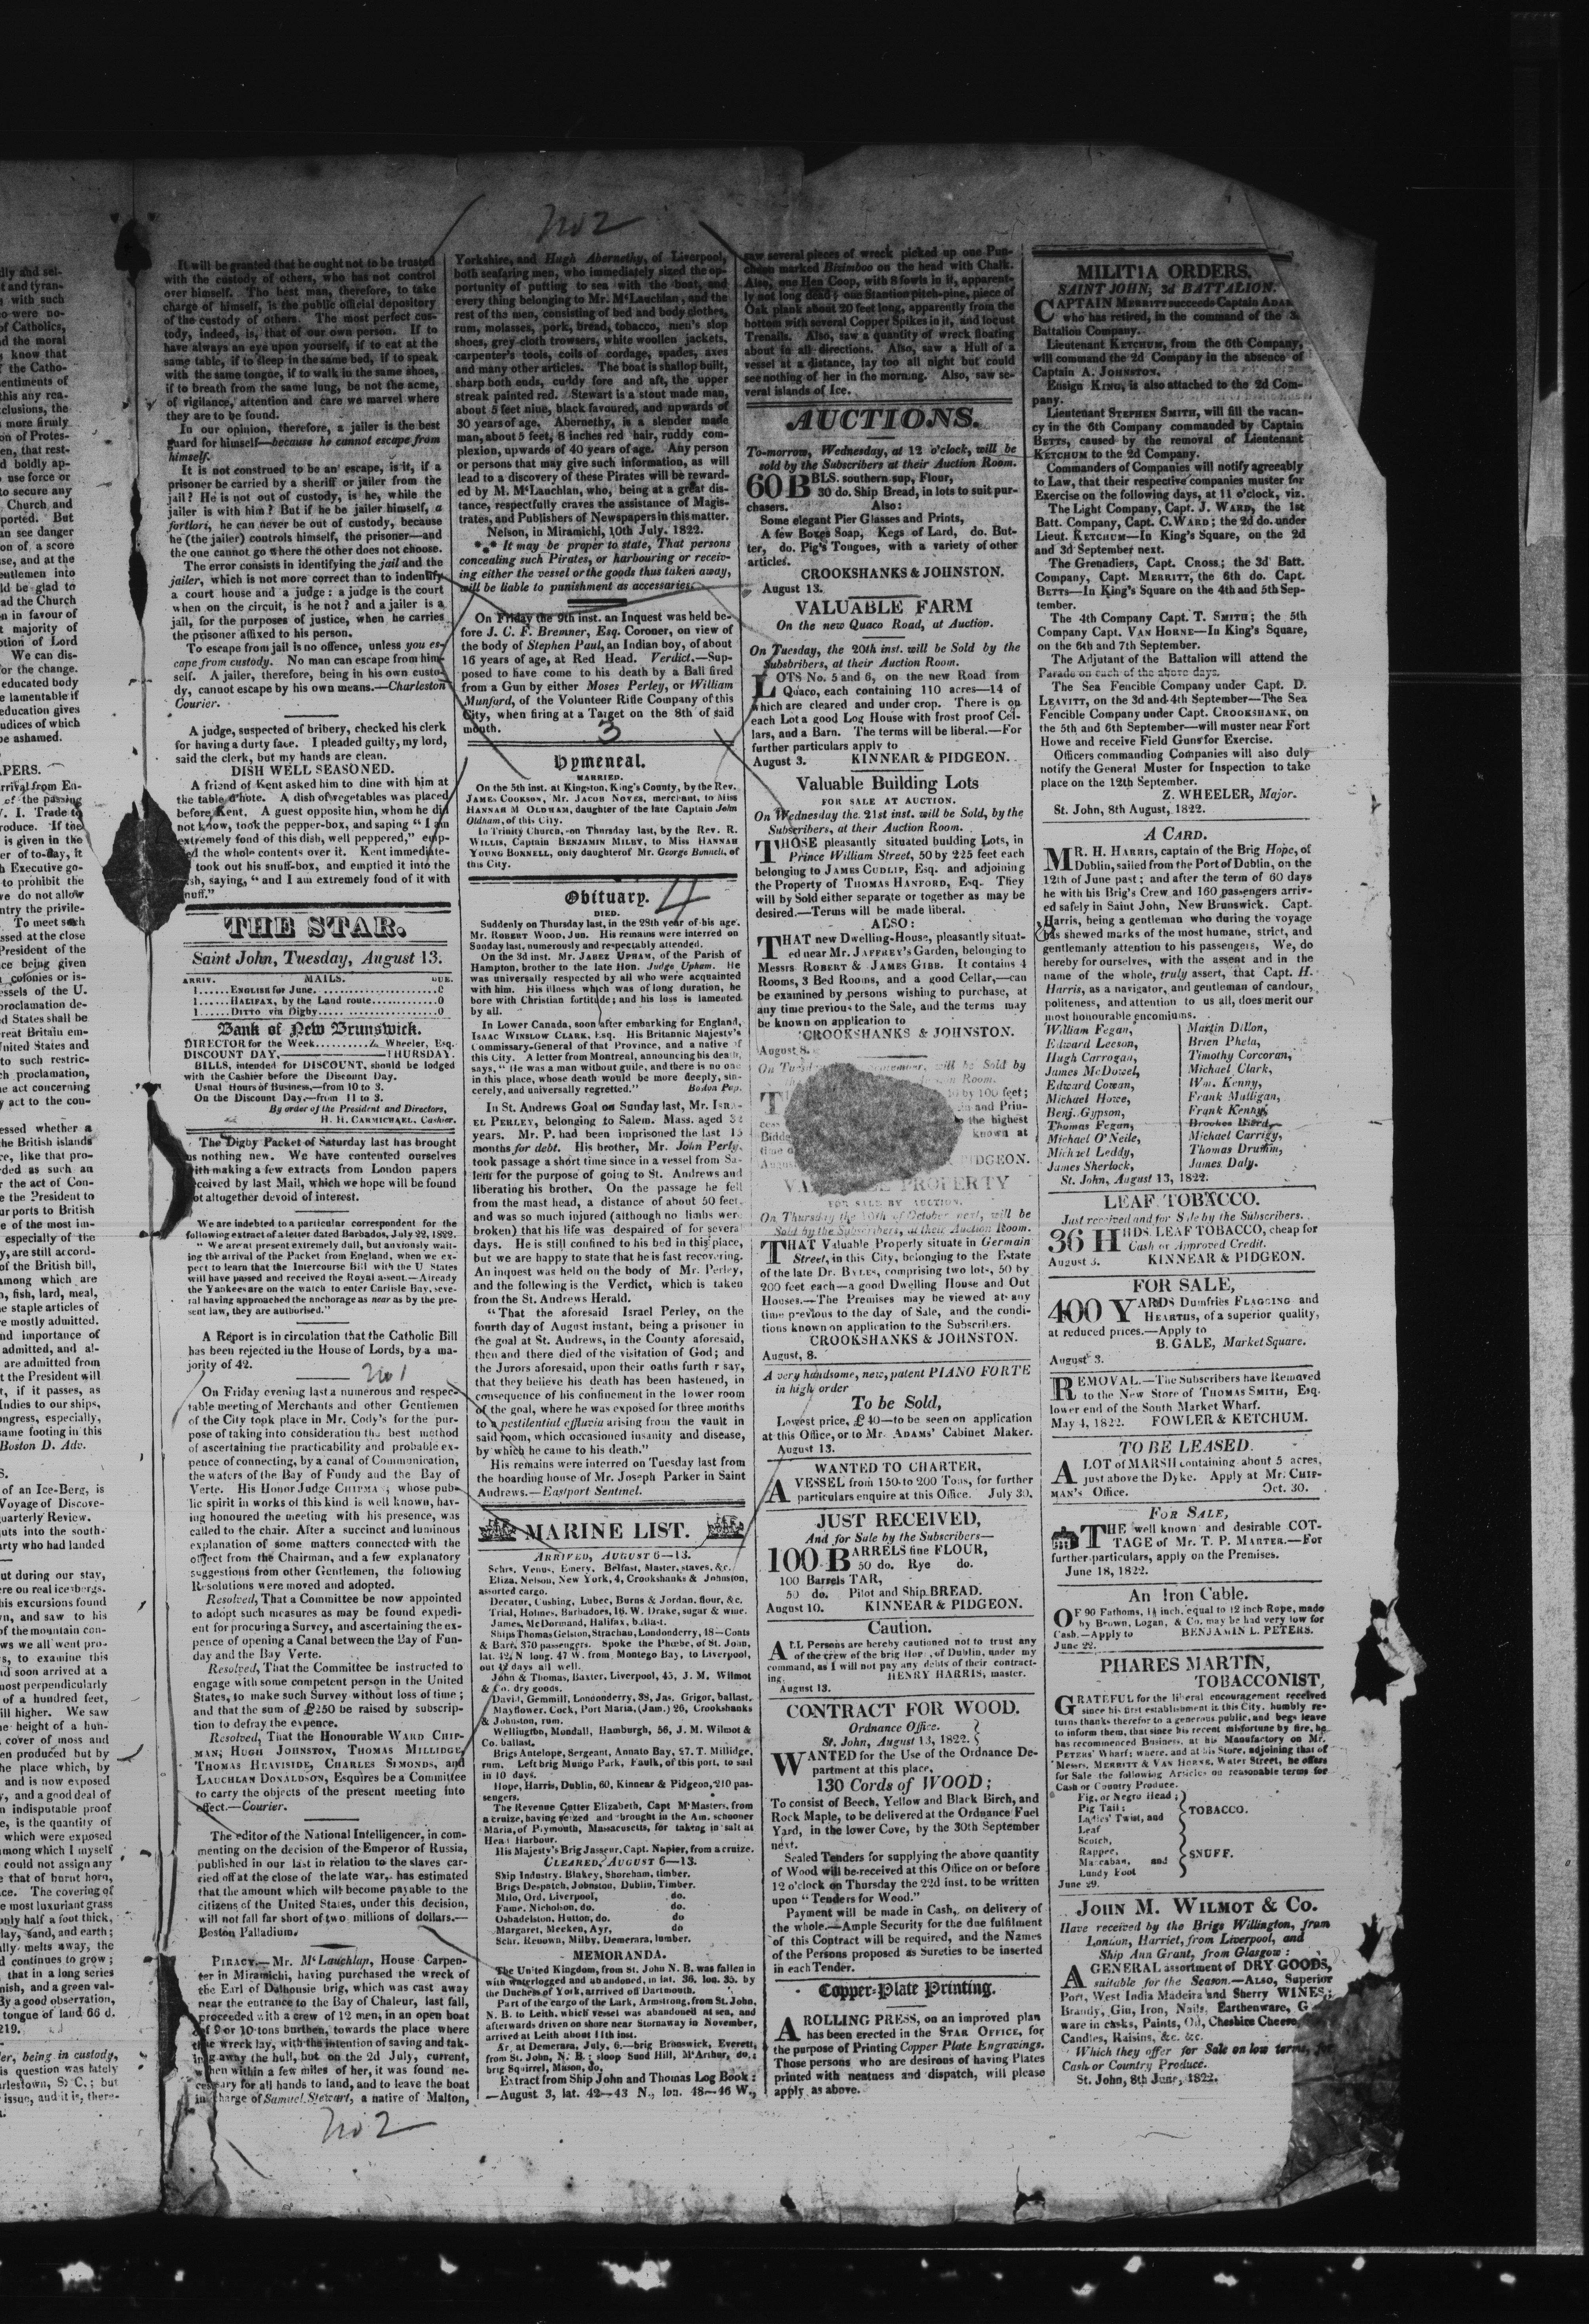 no 2
It will be granted that he ought not to be trusted
with the custody of others, who has not control
over himself. The best man, therefore, to take
charge of himself, is the public official depository
of the custody of others. The most perfect cus-
tody, indeed, is, that of our own person. If to
have always an eye upon yourself, if to eat at the
same table, if to sleep in the same bed, if to speak
with the same tongue, if to walk in the same shoes,
if to breath from the same lung, be not the acme,
of vigilance, attention and care we marvel where
they are to be found.
In our opinion, therefore, a jailer is the best
guard for himself—because he cannot escape from
himself.
It is not construed to be an escape, is it, if a
prisoner be carried by a sheriff or jailer from the
jail? He is not out of custody, is he, while the
jailer is with him? But if he be jailer himself, a
fortiori, he can never be out of custody, because
he (the jailer) controls himself, the prisoner—and
the one cannot go where the other does not choose.
The error consists in identifying the jail and the
jailer, which is not more correct than to indentify
a court house and a judge: a judge is the court
when on the circuit, is he not? and a jailer is a
jail, for the purposes of justice, when he carries
the prisoner affixed to his person.
To escape from jail is no offence, unless you es-
cape from custody. No man can escape from him-
self. A jailer, therefore, being in his own custo-
dy, cannot escape by his own means.—Charleston
Courier.
A judge, suspected of bribery, checked his clerk
for having a durty face. I pleaded guilty, my lord,
said the clerk, but my hands are clean.
DISH WELL SEASONED.
A friend of Kent asked him to dine with him at
the table d'hote. A dish of vegetables was placed
before Kent. A guest opposite him, whom he did
not know, took the pepper-box, and saping "I am
extremely fond of this dish, well peppered," emp-
the whole contents over it. Kent immediate-
took out his snuff-box, and emptied it into the
saying, "and I am extremely fond of it with
snuff."
THE STAR.
Saint John, Tuesday, August 13.
ARRIV. MAILS. DUE.
1......ENGLISH for June......0
1......HALIFAX, by the Land route......0
1......DITTO via Digby......0
Bank of New Brunswick.
DIRECTOR for the Week..........Z. Wheeler, Esq.
DISCOUNT DAY,—THURSDAY.
BILLS, intended for DISCOUNT, should be lodged
with the Cashier before the Discount Day.
Usual Hours of Business,—from 10 to 3.
On the Discount Day.—from 11 to 3.
By order of the President and Directors,
H. H. CARMICHAEL, Cashier.
The Digby Packet of Saturday last has brought
us nothing new. We have contented ourselves
with making a few extracts from London papers
received by last Mail, which we hope will be found
not altogether devoid of interest.
We are indebted to a particular correspondent for the
following extract of a letter dated Barbados, July 22, 1822.
"We are at present extremely dull, but anxiously wait-
ing the arrival of the Packet from England, when we ex-
pect to learn that the Intercourse Bill with the U States
will have passed and received the Royal assent.—Already
the Yankees are on the watch to enter Carlisle Bay, seve-
ral having approached the anchorage as near as by the pre-
sent law, they are authorised."
A Report is in circulation that the Catholic Bill
has been rejected in the House of Lords, by a ma-
jority of 42.
no 1
On Friday evening last a numerous and respec-
table meeting of Merchants and other Gentlemen
of the City took place in Mr. Cody's for the pur-
pose of taking into consideration the best method
of ascertaining the practicability and probable ex-
pence of connecting, by a canal of Communication,
the waters of the Bay of Fundy and the Bay of
Verte. His Honor Judge CHIPMAN; whose pub-
lic spirit in works of this kind is well known, hav-
ing honoured the meeting with his presence, was
called to the chair. After a succinct and luminous
explanation of some matters connected with the
object from the Chairman, and a few explanatory
suggestions from other Gentlemen, the following
Resolutions were moved and adopted.
Resolved, That a Committee be now appointed
to adopt such measures as may be found expedi-
ent for procuring a Survey, and ascertaining the ex-
pence of opening a Canal between the Bay of Fun-
day and the Bay Verte.
Resolved, That the Committee be instructed to
engage with some competent person in the United
States, to make such Survey without loss of time;
and that the sum of £250 be raised by subscrip-
tion to defray the expence.
Resolved, That the Honourable WARD CHIP-
MAN; HUGH JOHNSTON, THOMAS MILLIDGE,
THOMAS HEAVISIDE, CHARLES SIMONDS, and
LAUCHLAN DONALDSON, Esquires be a Committee
to carry the objects of the present meeting into
effect.—Courier.
The editor of the National Intelligencer, in com-
menting on the decision of the Emperor of Russia,
published in our last in relation to the slaves car-
ried off at the close of the late war, has estimated
that the amount which will become payable to the
citizens of the United States, under this decision,
will not fall far short of two millions of dollars.—
Boston Palladium.
PIRACY.—Mr. M'Lauchlan, House Carpen-
ter in Miramichi, having purchased the wreck of
the Earl of Dalhousie brig, which was cast away
near the entrance to the Bay of Chaleur, last fall,
proceeded with a crew of 12 men, in an open boat
of 9 or 10 tons burthen, towards the place where
the wreck lay, with the intention of saving and tak-
ing away the hull, but on the 2d July, current,
when within a few miles of her, it was found ne-
cessary for all hands to land, and to leave the boat
in charge of Samuel Stewart, a native of Malton,
no 2
Yorkshire, and Hugh Abernethy, of Liverpool,
both seafaring men, who immediately sized the op-
portunity of putting to sea with the boat, and
every thing belonging to Mr. M'Lauchlan, and the
rest of the men, consisting of bed and body clothes,
rum, molasses, pork, bread, tobacco, men's slop
shoes, grey cloth trowsers, white woollen jackets,
carpenter's tools, coils of cordage, spades, axes
and many other articles. The boat is shallop built,
sharp both ends, cuddy fore and aft, the upper
streak painted red. Stewart is a stout made man,
about 5 feet nine, black favoured, and upwards of
30 years of age. Abernethy, is a slender made
man, about 5 feet, 8 inches red hair, ruddy com-
plexion, upwards of 40 years of age. Any person
or persons that may give such information, as will
lead to a discovery of these Pirates will be reward-
ed by M. M'Lauchlan, who, being at a great dis-
tance, respectfully craves the assistance of Magis-
trates, and Publishers of Newspapers in this matter.
Nelson, in Miramichi, 10th July. 1822.
*⁎* It may be proper to state, That persons
concealing such Pirates, or harbouring or receiv-
ing either the vessel or the goods thus taken away,
will be liable to punishment as accessaries.
On Friday the 9th inst. an Inquest was held be-
fore J. C. F. Bremner, Esq. Coroner, on view of
the body of Stephen Paul, an Indian boy, of about
16 years of age, at Red Head. Verdict.—Sup-
posed to have come to his death by a Ball fired
from a Gun by either Moses Perley, or William
Munford, of the Volunteer Rifle Company of this
City, when firing at a Target on the 8th of said
month.
3
Hymeneal.
MARRIED.
On the 5th inst. at Kingston, King's County, by the Rev.
JAMES COOKSON, Mr. JACOB NOYES, merchant, to Miss
HANNAH M OLDHAM, daughter of the late Captain John
Oldham, of this City.
In Trinity Church, on Thursday last, by the Rev. R.
WILLIS, Captain BENJAMIN MILBY, to Miss HANNAH
YOUNG BONNELL, only daughter of Mr. George Bonnell, of
this City.
Obituary.
4
DIED.
Suddenly on Thursday last, in the 28th year of his age.
Mr. ROBERT WOOD, Jun. His remains were interred on
Sunday last, numerously and respectably attended.
On the 3d inst. Mr. JABEZ UPHAM, of the Parish of
Hampton, brother to the late Hon. Judge Upham. He
was universally respected by all who were acquainted
with him. His illness which was of long duration, he
bore with Christian fortitude; and his loss is lamented
by all.
In Lower Canada, soon after embarking for England,
ISAAC WINSLOW CLARK, Esq. His Britannic Majesty's
Commissary-General of that Province, and a native of
this City. A letter from Montreal, announcing his death,
says, "He was a man without guile, and there is no one
in this place, whose death would be more deeply, sin-
cerely, and universally regretted." Boston Pap.
In St. Andrews Goal on Sunday last, Mr. ISRA-
EL PERLEY, belonging to Salem. Mass. aged
years. Mr. P. had been imprisoned the last 15
months for debt. His brother, Mr. John Perly,
took passage a short time since in a vessel from Sa-
lem for the purpose of going to St. Andrews and
liberating his brother. On the passage he fell
from the mast head, a distance of about 50 feet.
and was so much injured (although no limbs were
broken) that his life was despaired of for several
days. He is still confined to his bed in this place,
but we are happy to state that he is fast recovering.
An inquest was held on the body of Mr. Perley,
and the following is the Verdict, which is taken
from the St. Andrews Herald.
"That the aforesaid Israel Perley, on the
fourth day of August instant, being a prisoner in
the goal at St. Andrews, in the County aforesaid,
then and there died of the visitation of God; and
the Jurors aforesaid, upon their oaths furth r say,
that they believe his death has been hastened, in
consequence of his confinement in the lower room
of the goal, where he was exposed for three months
to a pestilential effluvia arising from the vault in
said room, which occasioned insanity and disease,
by which he came to his death."
His remains were interred on Tuesday last from
the boarding house of Mr. Joseph Parker in Saint
Andrews.—Eastport Sentinel.
MARINE LIST.
ARRIVED, AUGUST 6—13.
Schrs. Venus, Emery, Belfast, Master, staves, &c.
Eliza, Nelson, New York, 4, Crookshanks & Johnston,
assorted cargo.
Decatur, Cushing, Lubec, Burns & Jordan, flour, &c.
Trial, Holmes, Barbadoes, 16. W. Drake, sugar & wine.
James, McDormand, Halifax, ballast.
Ships Thomas Gelston, Strachan, Londonderry, 48—Coats
& Bare, 370 passengers. Spoke the Phœbe, of St. John,
lat. 42 N long. 47 W. from Montego Bay, to Liverpool,
out 42 days all well.
John & Thomas, Baxter, Liverpool, 45, J. M. Wilmot
& Co. dry goods.
David, Gemmill, Londonderry, 38, Jas. Grigor, ballast.
Mayflower, Cock, Port Maria, (Jam.) 26, Crookshanks
& Johnston, rum.
Wellington, Mondall, Hamburgh, 56, J. M. Wilmot &
Co. ballast.
Brigs Antelope, Sergeant, Annato Bay, 27. T. Millidge,
rum. Left brig Mungo Park, Faulk, of this port, to sail
in 10 days.
Hope, Harris, Dublin, 60, Kinnear & Pidgeon, 210 pas-
sengers.
The Revenue Cutter Elizabeth, Capt M'Masters, from
a cruize, having seized and brought in the Am. schooner
Maria, of Plymouth, Massacusetts, for taking in salt at
Head Harbour.
His Majesty's Brig Jasseur, Capt. Napier, from a cruize.
CLEARED, AUGUST 6—13.
Ship Industry, Blakey, Shoreham, timber.
Brigs Despatch, Johnston, Dublin, Timber.
Milo, Ord, Liverpool, do.
Fame, Nicholson, do. do.
Osbadelston, Hutton, do. do
Margaret, Meeken, Ayr, do
Schr. Renown, Milby, Demerara, lumber.
MEMORANDA.
The United Kingdom, from St. John N. B. was fallen in
with waterlogged and abandoned, in lat. 36, lon. 35. by
the Duchess of York, arrived off Dartmouth.
Part of the cargo of the Lark, Armstrong, from St. John,
N. B. to Leith, which vessel was abandoned at sea, and
afterwards driven on shore near Stornaway in November,
arrived at Leith about 11th inst.
Ar. at Demerara, July, 6.—brig Brunswick, Everett,
from St. John, N. B.; sloop Sund Hill, M'Arthur, do.;
brig Squirrel, Mason, do.
Extract from Ship John and Thomas Log Book:
—August 3, lat. 42—43 N., lon. 48—46 W.,
saw several pieces of wreck picked up one Pun-
cheon marked Bizimboo on the head with Chalk.
Also, one Hen Coop, with 8 fowls in it, apparent-
ly not long dead; one Stantion pitch-pine, piece of
Oak plank about 20 feet long, apparently from the
bottom with several Copper Spikes in it, and locust
Trenails. Also, saw a quantity of wreck floating
about in all directions. Also, saw a Hull of a
vessel at a distance, lay too all night but could
see nothing of her in the morning. Also, saw se-
veral islands of Ice.
AUCTIONS.
To-morrow, Wednesday, at 12 o'clock, will be
sold by the Subscribers at their Auction Room.
60 BBLS. southern sup, Flour,
30 do. Ship Bread, in lots to suit pur-
chasers. Also:
Some elegant Pier Glasses and Prints,
A few Boxes Soap, Kegs of Lard, do. But-
ter, do. Pig's Tongues, with a variety of other
articles.
CROOKSHANKS & JOHNSTON.
August 13.
VALUABLE FARM
On the new Quaco Road, at Auction.
On Tuesday, the 20th inst. will be Sold by the
Subsbribers, at their Auction Room.
LOTS No. 5 and 6, on the new Road from
Quaco, each containing 110 acres—14 of
which are cleared and under crop. There is on
each Lot a good Log House with frost proof Cel-
lars, and a Barn. The terms will be liberal.—For
further particulars apply to
August 3. KINNEAR & PIDGEON.
Valuable Building Lots
FOR SALE AT AUCTION.
On Wednesday the 21st inst. will be Sold, by the
Subscribers, at their Auction Room.
THOSE pleasantly situated building Lots, in
Prince William Street, 50 by 225 feet each
belonging to JAMES CUDLIP, Esq. and adjoining
the Property of THOMAS HANFORD, Esq. They
will by Sold either separate or together as may be
desired.—Terms will be made liberal.
ALSO:
THAT new Dwelling-House, pleasantly situat-
ed near Mr. JAFFREY's Garden, belonging to
Messrs ROBERT & JAMES GIBB. It contains 4
Rooms, 3 Bed Rooms, and a good Cellar,—can
be examined by persons wishing to purchase, at
any time previous to the Sale, and the terms may
be known on application to
CROOKSHANKS & JOHNSTON.
August 8.
On will be Sold by
Room.
by 100 feet;
and Prin-
the highest
known at
PIDGEON.
PROPERTY
FOR SALE BY AUCTION.
On Thursday the 10th of October next, will be
Sold by the Subscribers, at their Auction Room.
THAT Valuable Property situate in Germain
Street, in this City, belonging to the Estate
of the late Dr. BYLES, comprising two lots, 50 by
200 feet each—a good Dwelling House and Out
Houses.—The Premises may be viewed at any
time previous to the day of Sale, and the condi-
tions known on application to the Subscribers.
CROOKSHANKS & JOHNSTON.
August, 8.
A very handsome, new, patent PIANO FORTE
in high order
To be Sold,
Lowest price, £40—to be seen on application
at this Office, or to Mr. ADAMS' Cabinet Maker.
August 13.
WANTED TO CHARTER,
A VESSEL from 150 to 200 Tons, for further
particulars enquire at this Office. July 30.
JUST RECEIVED,
And for Sale by the Subscribers—
100 BARRELS fine FLOUR,
50 do. Rye do.
100 Barrels TAR,
50 do. Pilot and Ship BREAD.
August 10. KINNEAR & PIDGEON.
Caution.
ALL Persons are hereby cautioned not to trust any
of the crew of the brig Hop , of Dublin, under my
command, as I will not pay any debts of their contract-
ing. HENRY HARRIS, master.
August 13.
CONTRACT FOR WOOD.
Ordnance Office.
St. John, August 13, 1822.
WANTED for the Use of the Ordnance De-
partment at this place,
130 Cords of WOOD;
To consist of Beech, Yellow and Black Birch, and
Rock Maple, to be delivered at the Ordnance Fuel
Yard, in the lower Cove, by the 30th September
next.
Sealed Tenders for supplying the above quantity
of Wood will be received at this Office on or before
12 o'clock on Thursday the 22d inst. to be written
upon "Tenders for Wood."
Payment will be made in Cash, on delivery of
the whole.—Ample Security for the due fulfilment
of this Contract will be required, and the Names
of the Persons proposed as Sureties to be inserted
in each Tender.
Copper-Plate Printing.
A ROLLING PRESS, on an improved plan
has been erected in the STAR OFFICE, for
the purpose of Printing Copper Plate Engravings.
Those persons who are desirous of having Plates
printed with neatness and dispatch, will please
apply as above.
MILITIA ORDERS.
SAINT JOHN, 3d BATTALION.
CAPTAIN MERRITT succeeds Captain
who has retired, in the command of the
Battalion Company.
Lieutenant KETCHUM, from the 6th Company,
will command the 2d Company in the absence of
Captain A. JOHNSTON.
Ensign KING, is also attached to the 2d Com-
pany.
Lieutenant STEPHEN SMITH, will fill the vacan-
cy in the 6th Company commanded by Captain
BETTS, caused by the removal of Lieutenant
KETCHUM to the 2d Company.
Commanders of Companies will notify agreeably
to Law, that their respective companies muster for
Exercise on the following days, at 11 o'clock, viz.
The Light Company, Capt. J. WARD, the 1st
Batt. Company, Capt. C. WARD; the 2d do. under
Lieut. KETCHUM—In King's Square, on the 2d
and 3d September next.
The Grenadiers, Capt. CROSS; the 3d Batt.
Company, Capt. MERRITT, the 6th do. Capt.
BETTS—In King's Square on the 4th and 5th Sep-
tember.
The 4th Company Capt. T. SMITH; the 5th
Company Capt. VAN HORNE—In King's Square,
on the 6th and 7th September.
The Adjutant of the Battalion will attend the
Parade on each of the above days.
The Sea Fencible Company under Capt. D.
LEAVITT, on the 3d and 4th September—The Sea
Fencible Company under Capt. CROOKSHANK, on
the 5th and 6th September—will muster near Fort
Howe and receive Field Guns for Exercise.
Officers commanding Companies will also duly
notify the General Muster for Inspection to take
place on the 12th September.
Z. WHEELER, Major.
St. John, 8th August, 1822.
A CARD.
MR. H. HARRIS, captain of the Brig Hope, of
Dublin, sailed from the Port of Dublin, on the
12th of June past; and after the term of 60 days
he with his Brig's Crew and 160 passengers arriv-
ed safely in Saint John, New Brunswick. Capt.
Harris, being a gentleman who during the voyage
has shewed marks of the most humane, strict, and
gentlemanly attention to his passengers, We, do
hereby for ourselves, with the assent and in the
name of the whole, truly assert, that Capt. H.
Harris, as a navigator, and gentleman of candour,
politeness, and attention to us all, does merit our
most honourable encomiums.
William Fegan, Martin Dillon,
Edward Leeson, Brien Phela,
Hugh Carrogan, Timothy Corcoran,
James McDowel, Michael Clark,
Edward Cowan, Wm. Kenny,
Michael Howe, Frank Mulligan,
Benj. Gypson, Frank Kenny,
Thomas Fegan,
Michael O'Neile, Michael Carrigy,
Michael Leddy, Thomas Drumm,
James Sherlock, James Daly.
St. John, August 13, 1822.
LEAF TOBACCO.
Just received and for Sale by the Subscribers.
36 HHDS. LEAF TOBACCO, cheap for
Cash or Approved Credit.
August 3. KINNEAR & PIDGEON.
FOR SALE,
400 YARDS Dumfries FLAGGING and
HEARTHS, of a superior quality,
at reduced prices.—Apply to
B. GALE, Market Square.
August 3.
REMOVAL.—The Subscribers have Removed
to the New Store of THOMAS SMITH, Esq.
lower end of the South Market Wharf.
May 4, 1822. FOWLER & KETCHUM.
TO BE LEASED.
A LOT of MARSH containing about 5 acres,
just above the Dyke. Apply at Mr. CHIP-
MAN's Office. Oct. 30.
FOR SALE,
THE well known and desirable COT-
TAGE of Mr. T. P. MARTER.—For
further particulars, apply on the Premises.
June 18, 1822.
An Iron Cable.
OF 90 Fathoms, 1¼ inch, equal to 12 inch Rope, made
by Brown, Logan, & Co. may be had very low for
Cash.—Apply to BENJAMIN L. PETERS.
June 22.
PHARES MARTIN,
TOBACCONIST,
GRATEFUL for the liberal encouragement received
since his first establishment in this City, humbly re-
turns thanks therefor to a generous public, and begs leave
to inform them, that since his recent misfortune by fire, he
has recommenced Business, at his Manufactory on Mr.
PETERS' Wharf; where, and at his Store, adjoining that of
Messrs. MERRITT & VAN HORNE, Water Street, he offers
for Sale the following Articles on reasonable terms for
Cash or Country Produce.
Fig, or Negro Head;
Pig Tail;
Ladies' Twist, and TOBACCO.
Leaf
Scotch,
Rappee,
Maccabau, and SNUFF.
Lundy Foot
June 29.
JOHN M. WILMOT & Co.
Have received by the Brigs Willington, from
London, Harriet, from Liverpool, and
Ship Ann Grant, from Glasgow:
A GENERAL assortment of DRY GOODS,
suitable for the Season.—ALSO, Superior
Port, West India Madeira and Sherry WINES;
Brandy, Gin, Iron, Nails, Earthenware, G
ware in casks, Paints, Oil, Cheshire Cheese,
Candles, Raisins, &c. &c.
Which they offer for Sale on low terms, for
Cash or Country Produce.
St. John, 8th June, 1822.